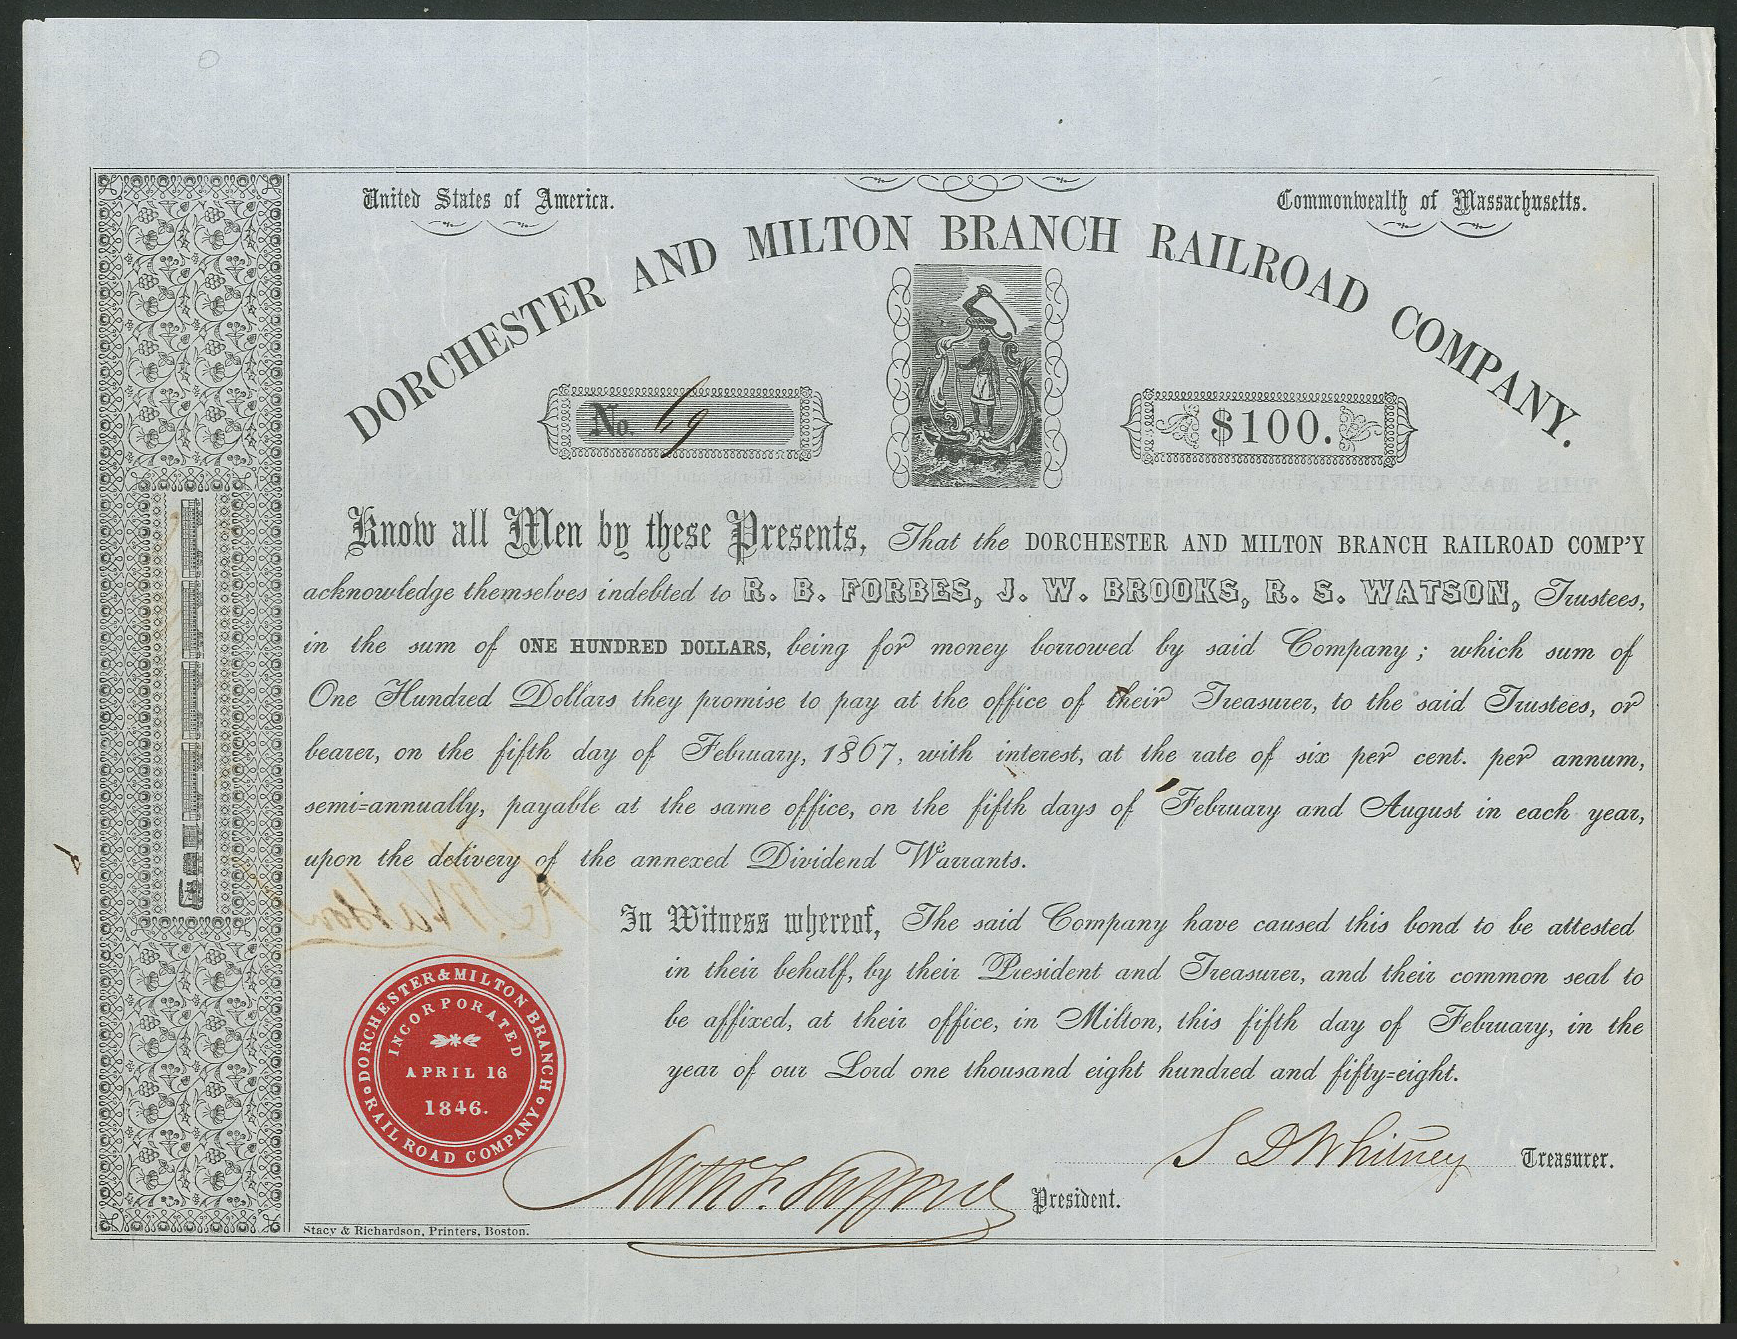 United States of America.
Commonwealth of Massachusetts.
DORCHESTER AND MILTON BRANCH RAILROAD COMPANY.
No. 69
$100.
Know all Men by these Presents, That the DORCHESTER AND MILTON BRANCH RAILROAD COMP'Y
acknowledge themselves indebted to R. B. FORBES, J. W. BROOKS, R. S. WATSON, Trustees,
in the sum of ONE HUNDRED DOLLARS, being for money borrowed by said Company; which sum of
One Hundred Dollars they promise to pay at the office of their Treasurer, to the said Trustees, or
bearer, on the fifth day of February, 1867, with interest, at the rate of six per cent. per annum,
semi=annually, payable at the same office, on the fifth days of February and August in each year,
upon the delivery of the annexed Dividend Warrants.
In Witness whereof, The said Company have caused this bond to be attested
in their behalf, by their President and Treasurer, and their common seal to
be affixed, at their office, in Milton, this fifth day of February, in the
year of our Lord one thousand eight hundred and fifty=eight.
DORCHESTER & MILTON BRANCH
RAIL ROAD COMPANY
INCORPORATED
APRIL 16
1846.
S D Whitney Treasurer.
President.
Stacy & Richardson, Printers, Boston.